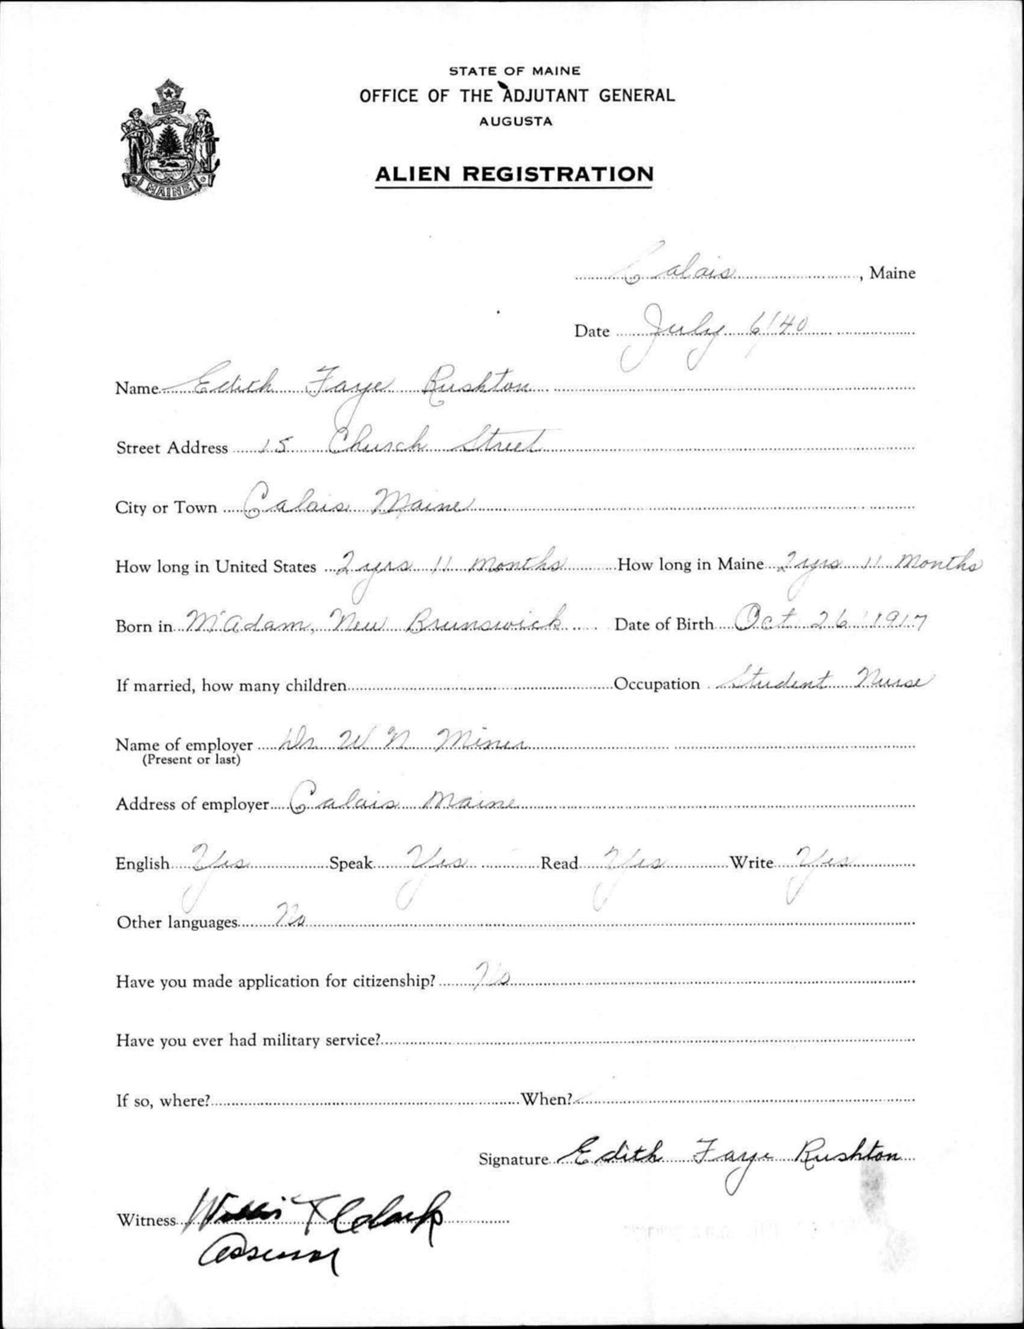 STATE OF MAINE
OFFICE OF THE ADJUTANT GENERAL
AUGUSTA
ALIEN REGISTRATION
MAINE
Calais, Maine
Date July 6/40
Name Edith Faye Rushton
Street Address 15 Church Street
City or Town Calais Maine
How long in United States 2 yrs 11 months How long in Maine 2 yrs 11 Months
Born in McAdam, New Brunswick Date of Birth Oct 26 1917
If married, how many children Occupation Student Nurse
Name of employer Dr W N Miner
(Present or last)
Address of employer Calais Maine
English Yes Speak Yes Read Yes Write Yes
Other languages No
Have you made application for citizenship? No
Have you ever had military service?
If so, where? When?
Signature Edith Faye Rushton
Witness Willis T Clark
Assessor